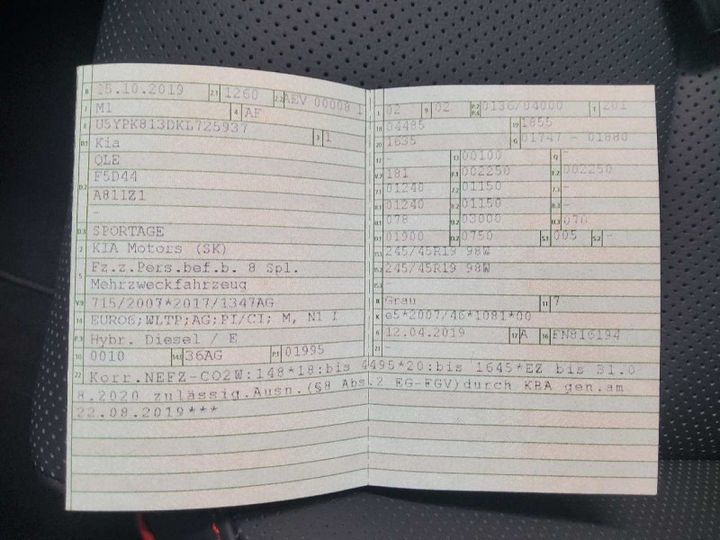 B 15.10.2019 2.1 1260 2.2 AEV 00008 1
J M1 4 AF
E U5YPK813DKL725937 3 1
D.1 Kia
QLE
F5D44
D.2 A811Z1
-
D.3 SPORTAGE
2 KIA Motors (SK)
5 Fz.z.Pers.bef.b. 8 Spl.
Mehrzweckfahrzeug
V.9 715/2007*2017/1347AG
14 EURO6;WLTP;AG;PI/CI; M, N1 I
P.3 Hybr. Diesel / E
10 0010 14.1 36AG P.1 01995
22 Korr.NEFZ-CO2W:148*18:bis 4495*20:bis 1645*EZ bis 31.0
8.2020 zulässig.Ausn.(§8 Abs.2 EG-FGV)durch KBA gen.am
22.08.2019***
L 02 9 02 P.2 P.4 0136/04000 T 201
18 04485 19 1855
20 1635 G 01747 - 01880
12 - 13 00100 Q -
V.7 181 F.1 002250 F.2 002250
7.1 01240 7.2 01150 7.3 -
8.1 01240 8.2 01150 8.3 -
U.1 078 U.2 03000 U.3 070
O.1 01900 O.2 0750 S.1 005 S.2 -
15.1 245/45R19 98W
15.2 245/45R19 98W
15.3 -
R Grau 11 7
K e5*2007/46*1081*00
6 12.04.2019 17 A 16 FN816194
21 -